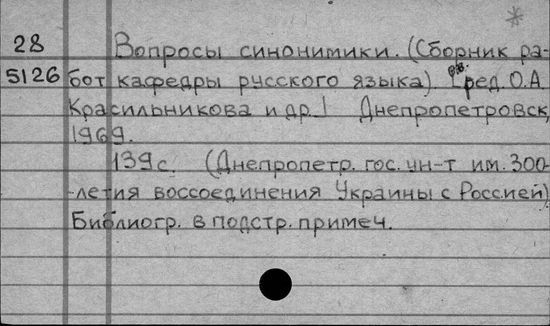 *
28 Вопросы синонимики. (Сборник ра-
5126 бот кафедры русского языка). [ред. О.А.
Красильникова и др.] Днепропетровск,
1969.
139 с. (Днепропетр. гос. ун-т им. 300-
-летия воссоединения Украины с Россией)
Библиогр. в подстр. примеч.